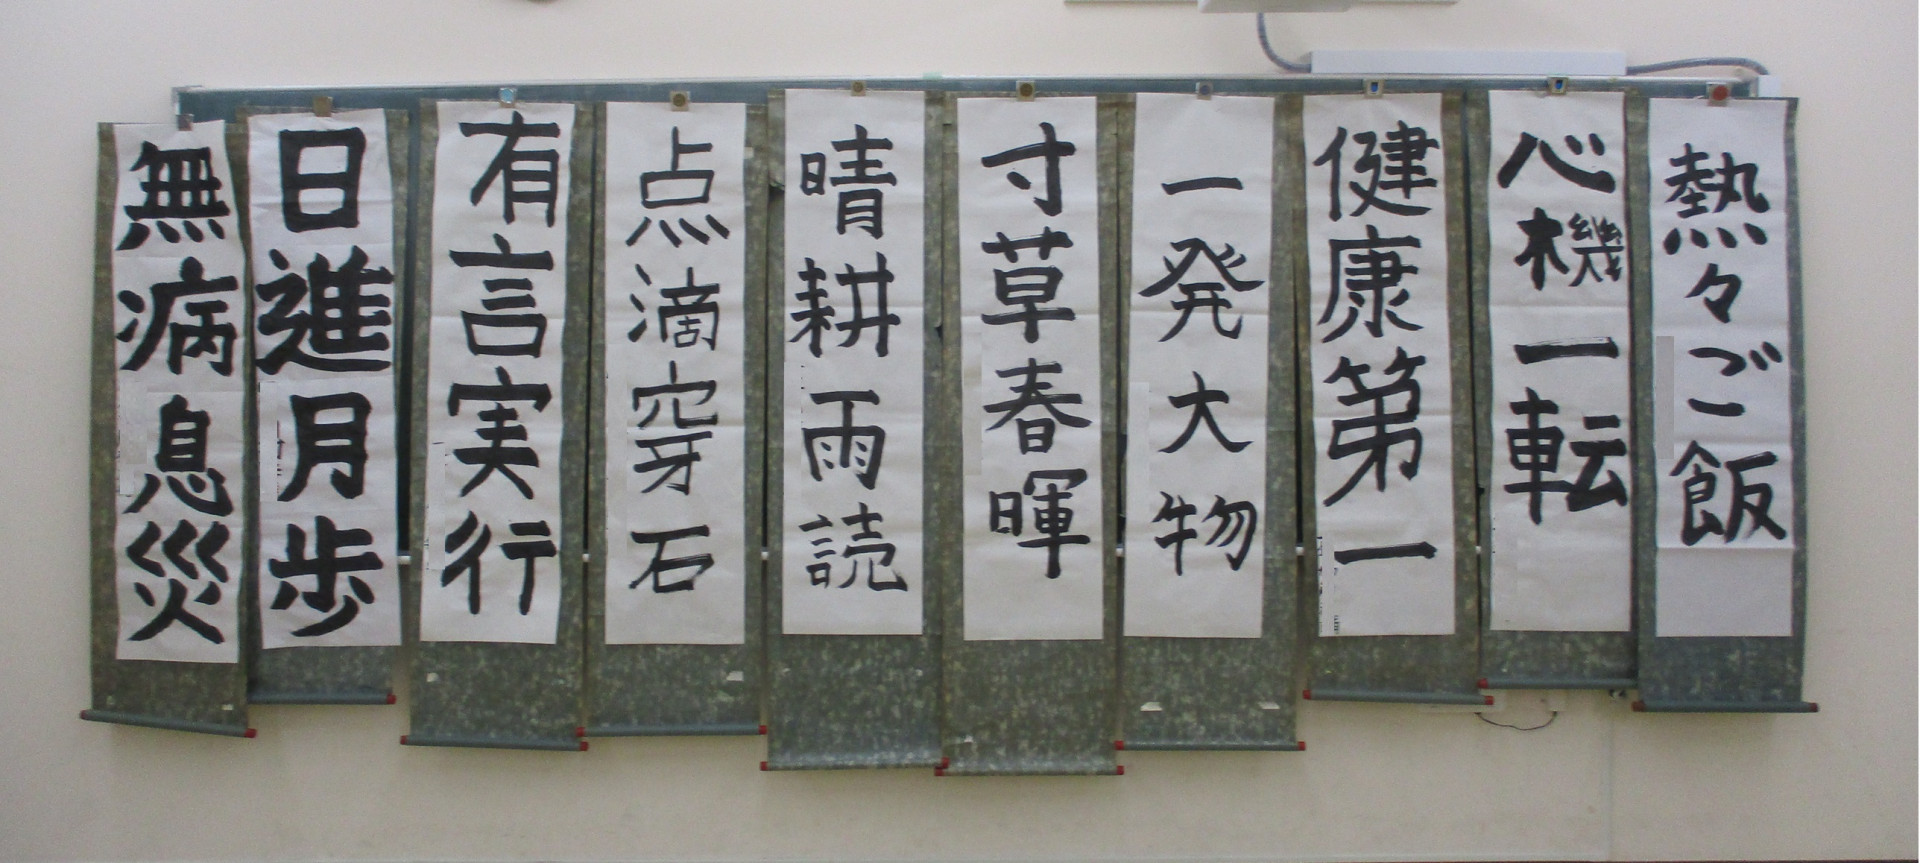 熱々ご飯
心機一転
健康第一
一発大物
寸草春暉
晴耕雨読
点滴穿石
有言実行
日進月歩
無病息災